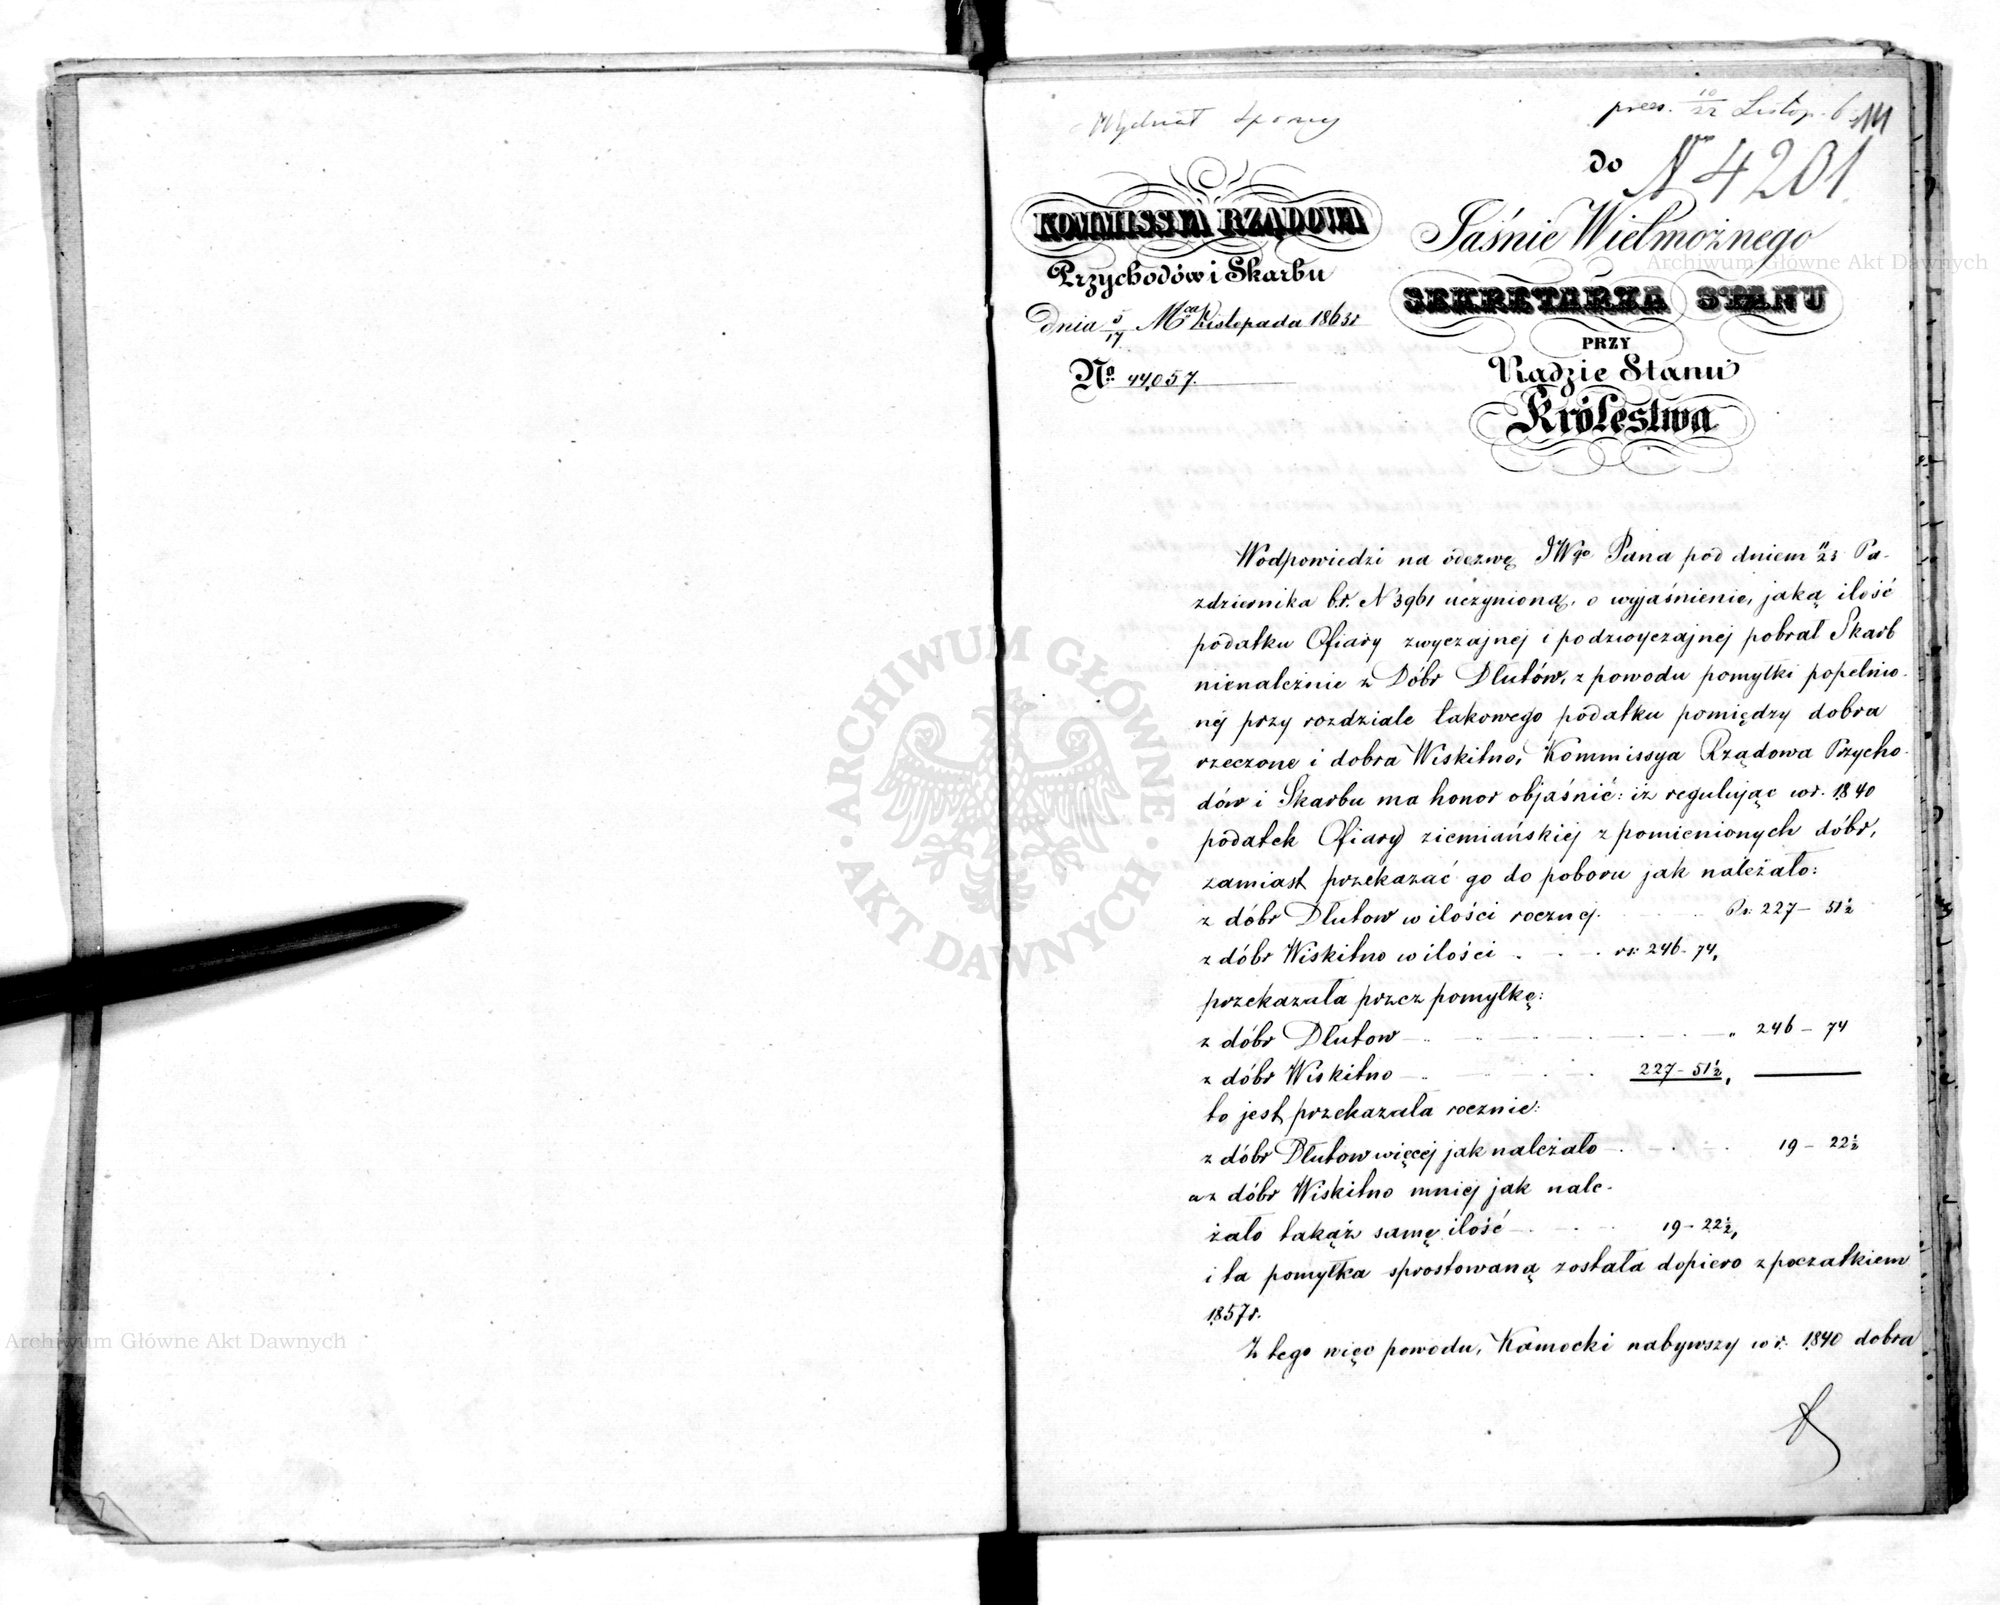 Wydział Sporny
prez. 10/22 Listop. 63
141
do N 4201
KOMMISSYA RZĄDOWA
Przychodów i Skarbu
Dnia 5/17 Mca Listopada 1863 r
No 44,057.
Jaśnie Wielmożnego
SEKRETARZA STANU
PRZY
Radzie Stanu
Królestwa
W odpowiedzi na odezwę JWgo Pana pod dniem 11/23 Pa-
zdziernika b.r. N 3961 uczynioną, o wyjaśnienie, jaką ilość
podatku Ofiary zwyczajnej i podzwyczajnej pobrał Skarb
nienależnie z Dóbr Dłutów, z powodu pomyłki popełnio-
nej przy rozdziale takowego podatku pomiędzy dobra
rzeczone i dobra Wiskitno, Kommissya Rządowa Przycho-
dów i Skarbu ma honor objaśnić: iż regulując w r. 1840
podatek Ofiary ziemiańskiej z pomienionych dóbr,
zamiast przekazać go do poboru jak należało:
z dóbr Dłutow w ilości rocznej. Rs: 227 – 51½
z dóbr Wiskitno w ilości rs: 246 – 74,
przekazała przez pomyłkę:
z dóbr Dłutow " 246 – 74
z dóbr Wiskitno 227 – 51½,
to jest przekazała rocznie:
z dóbr Dłutow więcej jak należało 19 – 22½
a z dóbr Wiskitno mniej jak nale-
żało takąż samę ilość 19 – 22½,
i ta pomyłka sprostowaną została dopiero z początkiem
1857 r.
Z tego więc powodu, Kamocki nabywszy w r. 1840 dobra
ARCHIWUM GŁÓWNE AKT DAWNYCH
Archiwum Główne Akt Dawnych
Archiwum Główne Akt Dawnych